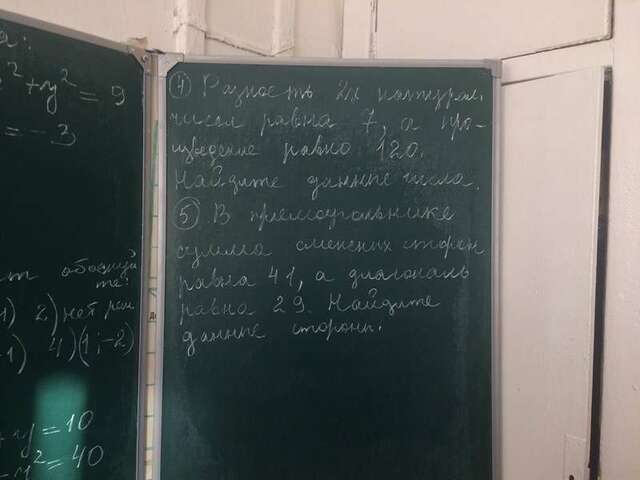 а:
x² + y² = 9
= -3
обознуй
те:
1) 2) нет реш
-1) 4) (1; -2)
+ y = 10
- y² = 40
④ Разность 2х натурал.
чисел равна 7, а про-
изведение равно 120.
Найдите данные числа.
⑤ В прямоугольнике
сумма смежных сторон
равна 41, а диагональ
равна 29. Найдите
данные стороны.